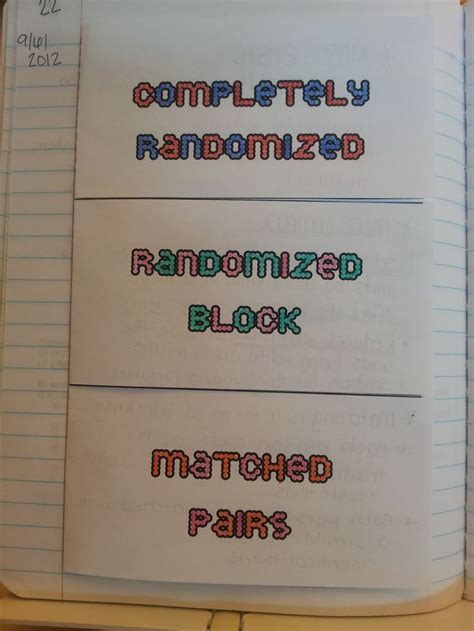 22
9/6/
2012
COMPLETELY
RANDOMIZED
RANDOMIZED
BLOCK
MATCHED
PAIRS